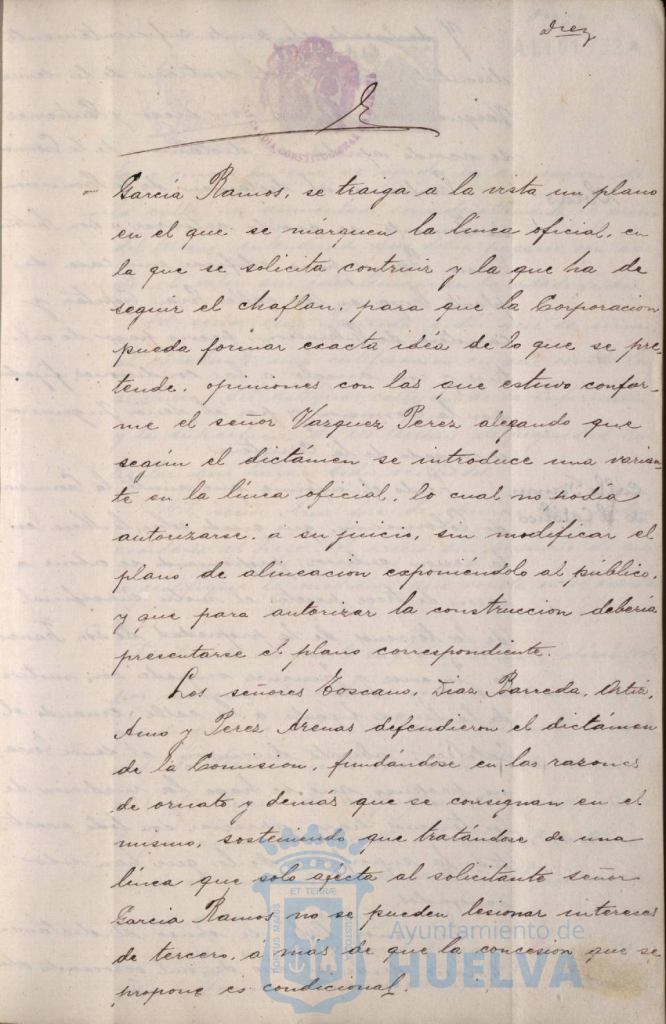 Diez
García Ramos, se traiga a la vista un plano
en el que se márquen la línea oficial, en
la que se solicita contruir y la que ha de
seguir el chaflan, para que la Corporacion
pueda formar exacta idéa de lo que se pre-
tende, opiniones con las que estuvo confor-
me el señor Vazquez Perez alegando que
según el dictámen se introduce una varian-
te en la línea oficial, lo cual no podía
autorizarse, a su juicio, sin modificar el
plano de alineacion exponiéndolo al público,
y que para autorizar la construccion debería
presentarse el plano correspondiente.
Los señores Toscano, Diaz Barreda, Ortiz,
Amo y Perez Arenas defendieron el dictámen
de la Comision, fundándose en las razones
de ornato y demás que se consignan en el
mismo, sosteniendo que tratándose de una
línea que solo afecta al solicitante señor
García Ramos no se pueden lesionar intereses
de tercero, a más de que la concesion que se
propone es condicional.
ET TERRÆ
Ayuntamiento de
HUELVA